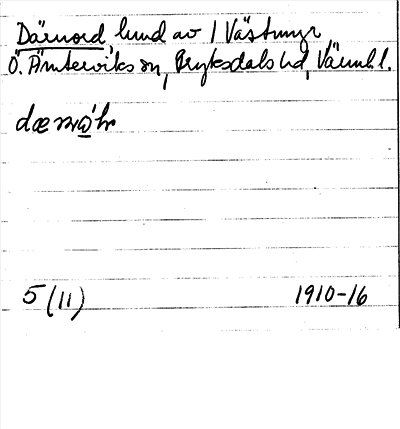 Därnord, hmd av 1 Västmyr,
Ö. Ämterviks sn, Fryksdals hd, Värml.
5 (11) 1910-16